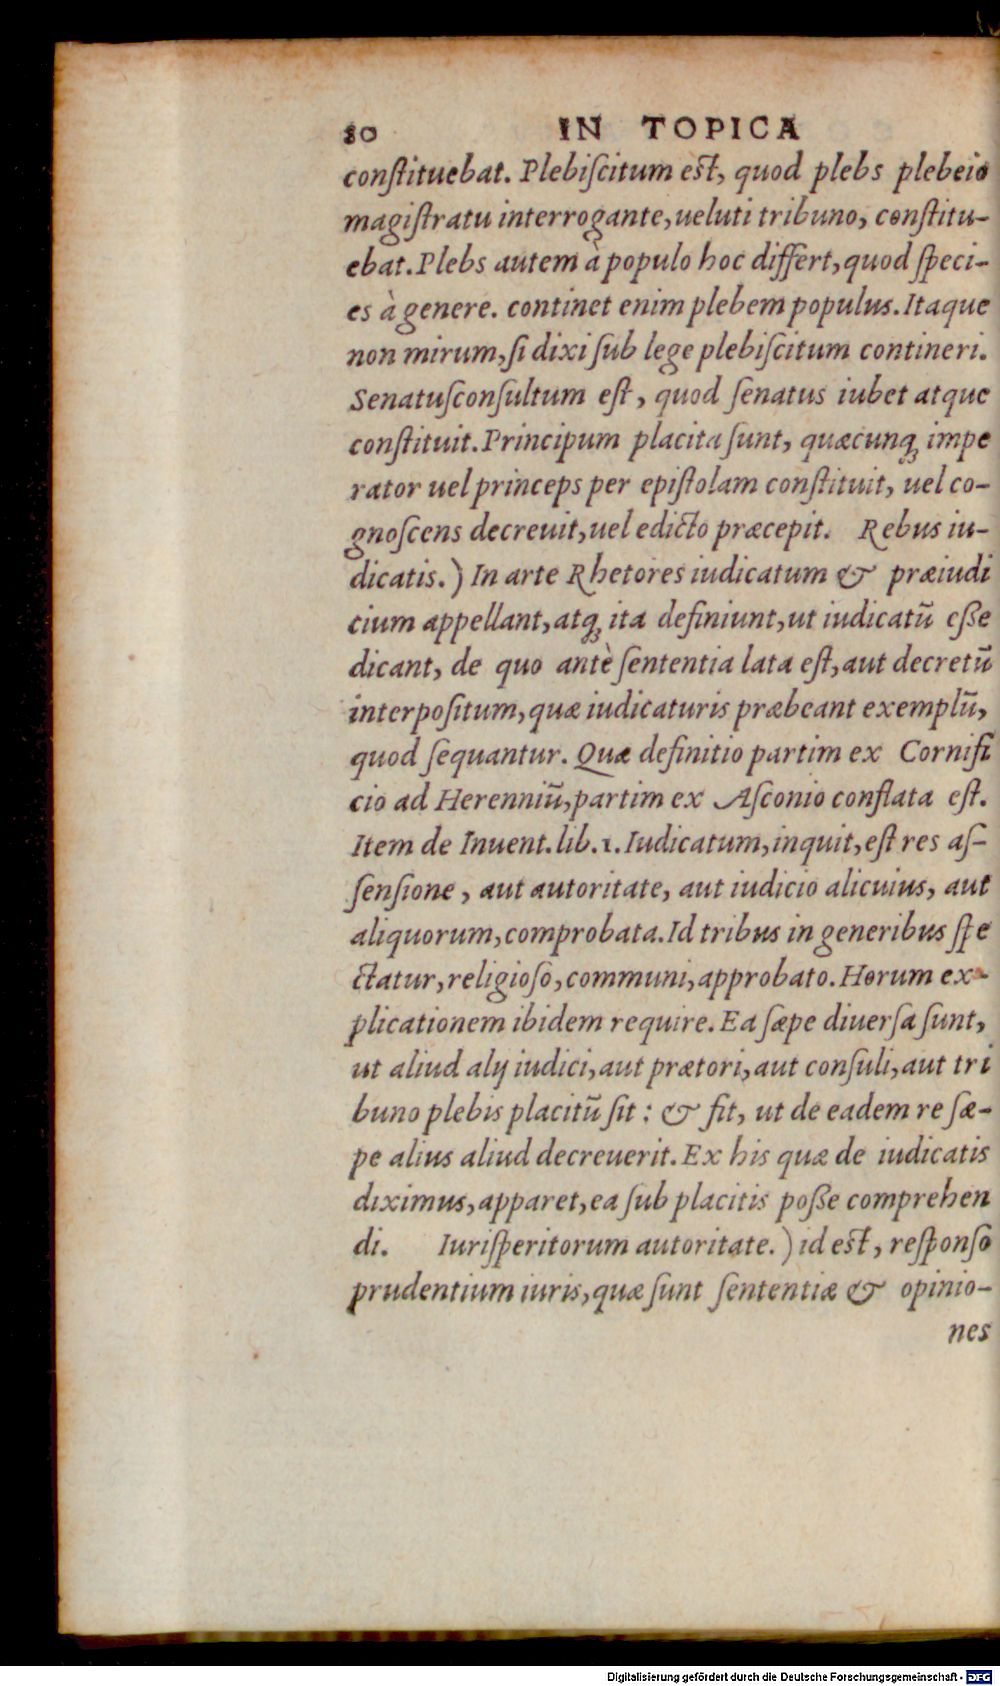 80 IN TOPICA
conſtituebat. Plebiſcitum est, quod plebs plebeio
magiſtratu interrogante, ueluti tribuno, conſtitu-
ebat. Plebs autem à populo hoc differt, quod ſpeci-
es à genere. continet enim plebem populus. Itaque
non mirum, ſi dixi ſub lege plebiſcitum contineri.
Senatuſconſultum eſt, quod ſenatus iubet atque
conſtituit. Principum placita ſunt, quæcunq; impe
rator uel princeps per epiſtolam conſtituit, uel co-
gnoſcens decreuit, uel edicto præcepit. Rebus iu-
dicatis.) In arte Rhetores iudicatum & præiudi
cium appellant, atq; ita definiunt, ut iudicatū eſſe
dicant, de quo antè ſententia lata eſt, aut decretū
interpoſitum, quæ iudicaturis præbeant exemplū,
quod ſequantur. Quæ definitio partim ex Cornifi
cio ad Herenniū, partim ex Aſconio conflata eſt.
Item de Inuent. lib. 1. Iudicatum, inquit, eſt res aſ-
ſenſione, aut autoritate, aut iudicio alicuius, aut
aliquorum, comprobata. Id tribus in generibus ſpe
ctatur, religioſo, communi, approbato. Horum ex-
plicationem ibidem require. Ea ſæpe diuerſa ſunt,
ut aliud alij iudici, aut prætori, aut conſuli, aut tri
buno plebis placitū ſit: & fit, ut de eadem re ſæ-
pe alius aliud decreuerit. Ex his quæ de iudicatis
diximus, apparet, ea ſub placitis poſſe comprehen
di. Iuriſperitorum autoritate.) id est, reſponſo
prudentium iuris, quæ ſunt ſententiæ & opinio-
nes
Digitalisierung gefördert durch die Deutsche Forschungsgemeinschaft - DFG